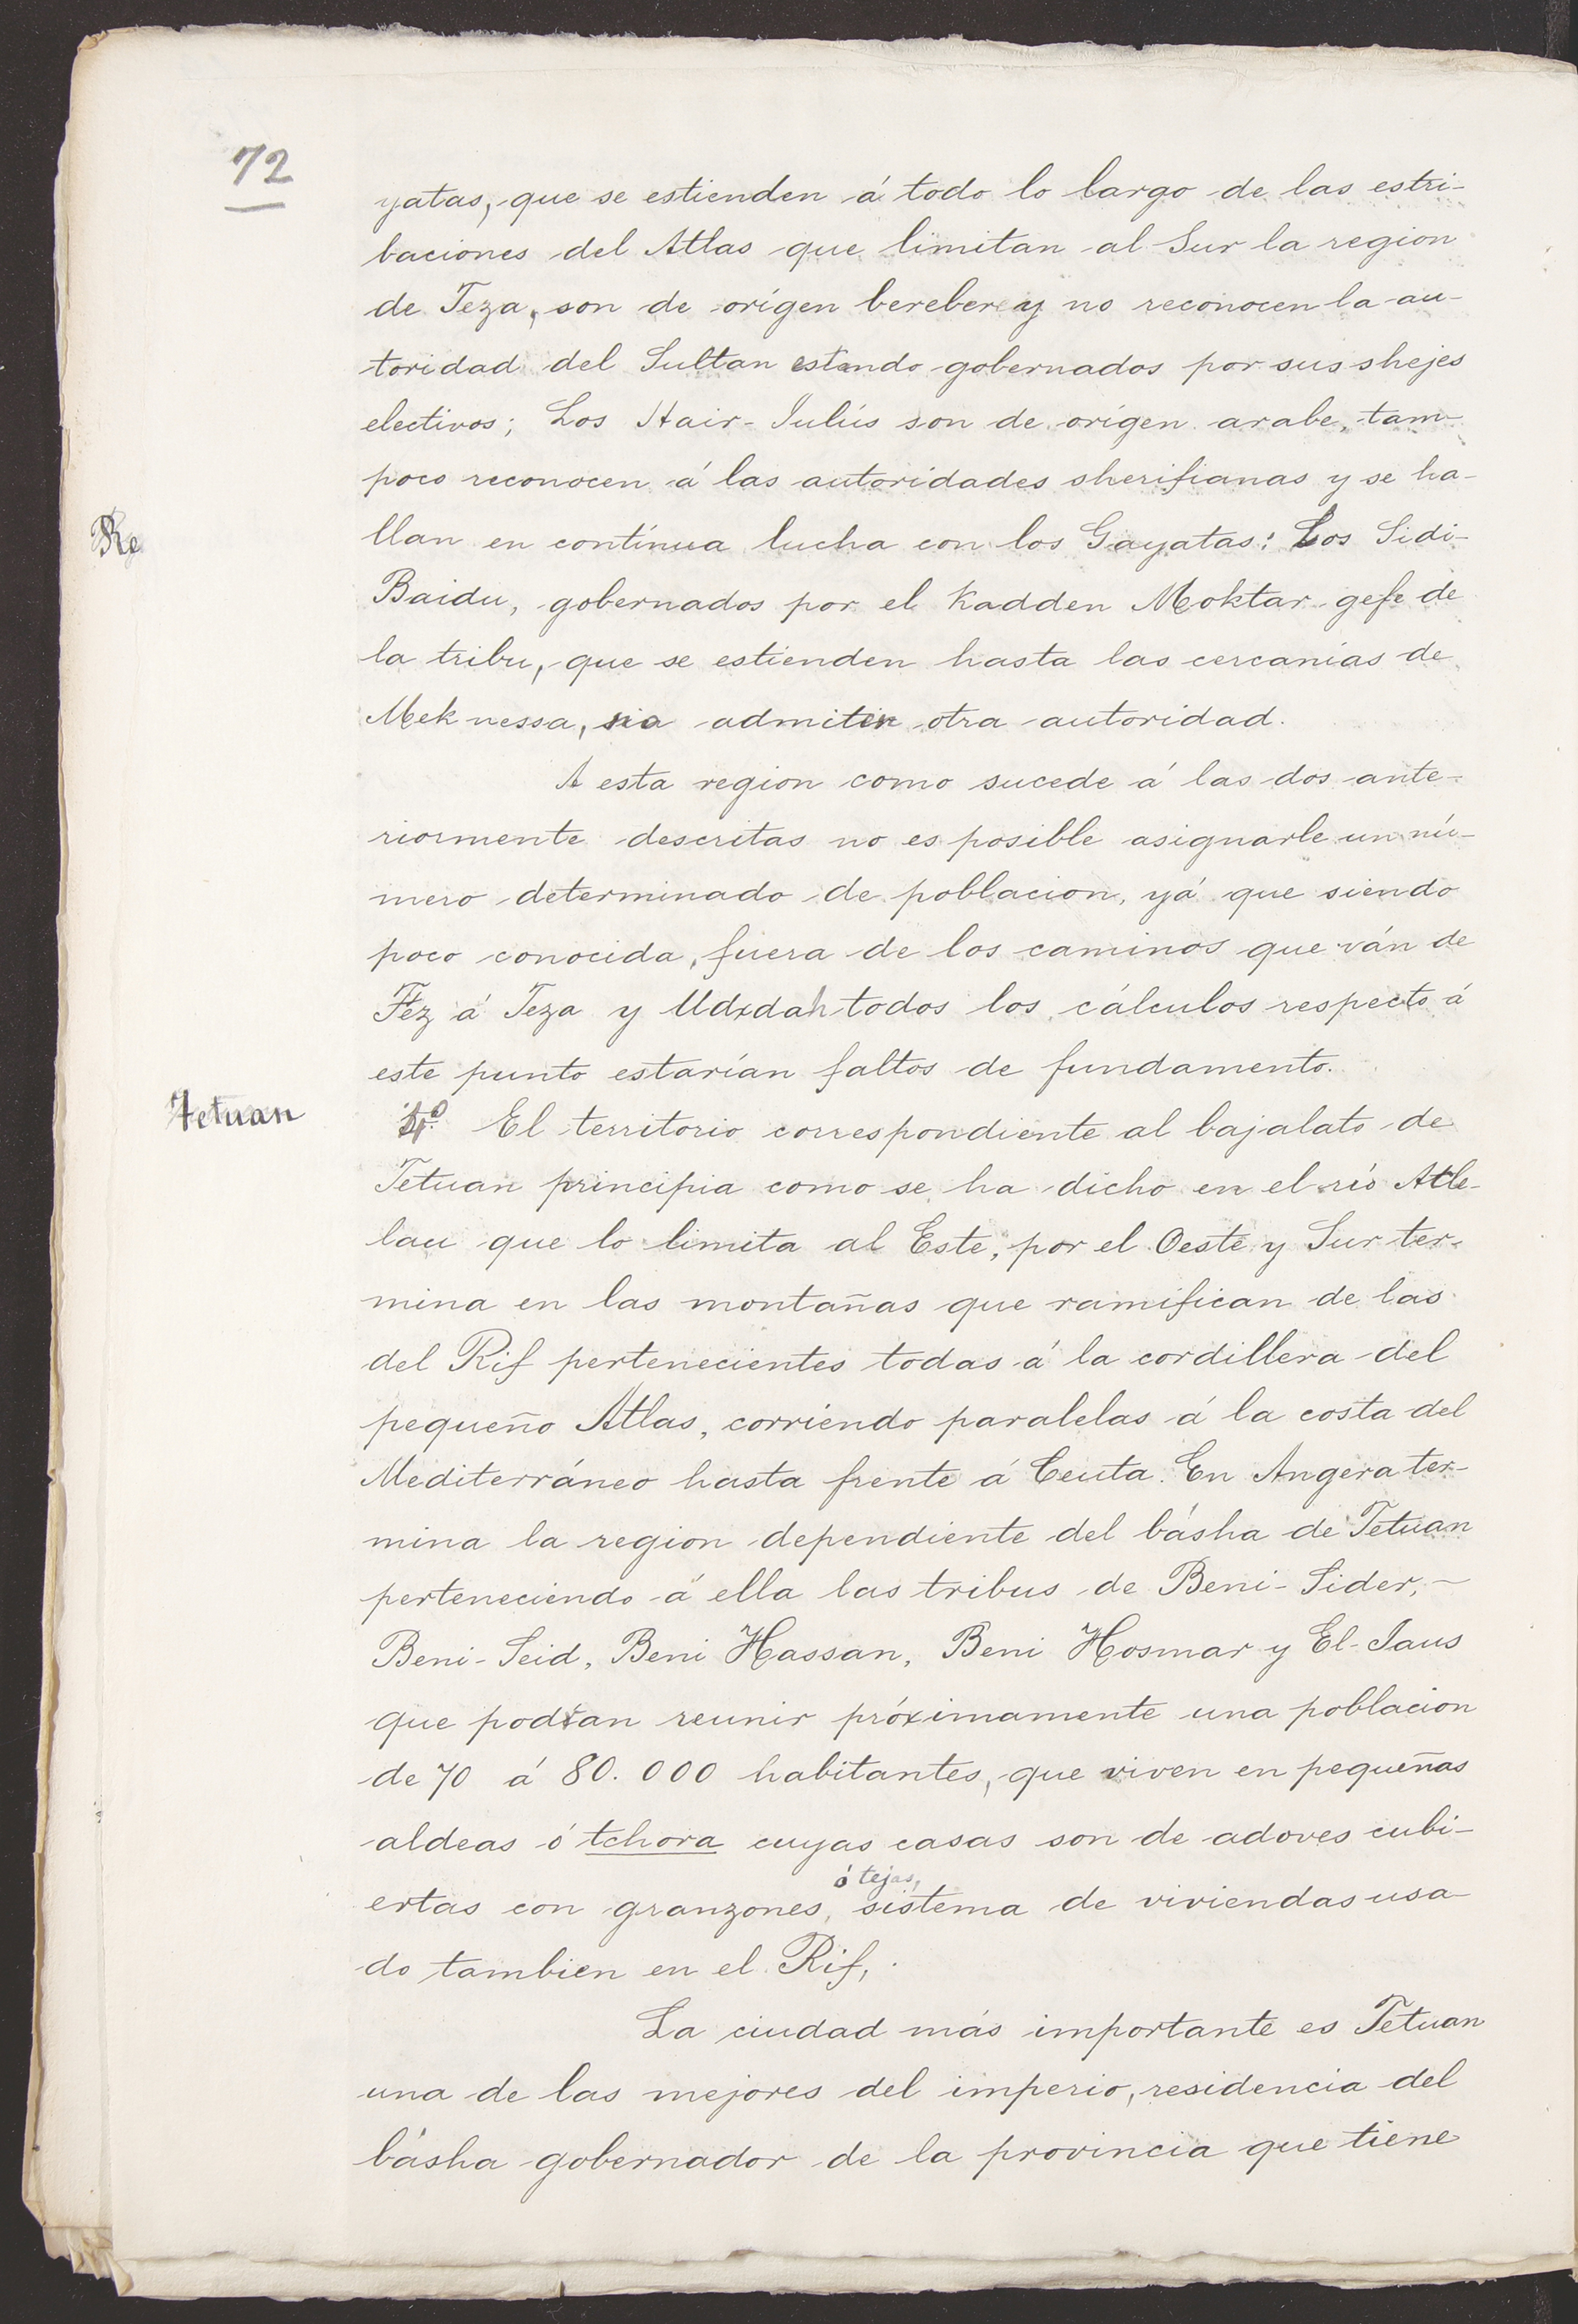 72
yatas, que se estienden á todo lo largo de las estri-
baciones del Atlas que limitan al Sur la region
de Teza, son de orígen bereber y no reconocen la au-
toridad del Sultan estando gobernados por sus shejes
electivos; Los Hair-Iulús son de orígen arabe, tam-
poco reconocen á las autoridades sherifianas y se ha-
Re
llan en contínua lucha con los Gayatas: Los Sidi-
Baidu, gobernados por el Kadden Moktar gefe de
la tribu, que se estienden hasta las cercanías de
Meknessa, sin admitir otra autoridad.
A esta region como sucede á las dos ante-
riormente descritas no es posible asignarle un nú-
mero determinado de poblacion, yá que siendo
poco conocida, fuera de los caminos que ván de
Fez á Teza y Udxdah todos los cálculos respecto á
este punto estarían faltos de fundamento.
Tetuan
4º El territorio correspondiente al bajalato de
Tetuan principia como se ha dicho en el río Atle-
lau que lo limita al Este, por el Oeste y Sur ter-
mina en las montañas que ramifican de las
del Rif pertenecientes todas á la cordillera del
pequeño Atlas, corriendo paralelas á la costa del
Mediterráneo hasta frente á Ceuta. En Angera ter-
mina la region dependiente del básha de Tetuan
perteneciendo á ella las tribus de Beni-Sider,
Beni-Seid, Beni Hassan, Beni Hosmar y El-Jaus
que podian reunir próximamente una poblacion
de 70 á 80.000 habitantes, que viven en pequeñas
aldeas ó tchora cuyas casas son de adoves cubi-
ó tejas,
ertas con granzones, sistema de viviendas usa
do tambien en el Rif,
La ciudad más importante es Tetuan
una de las mejores del imperio, residencia del
básha gobernador de la provincia que tiene